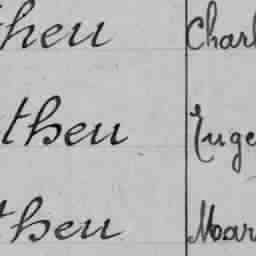 theu Charl
theu Euge
theu Mar